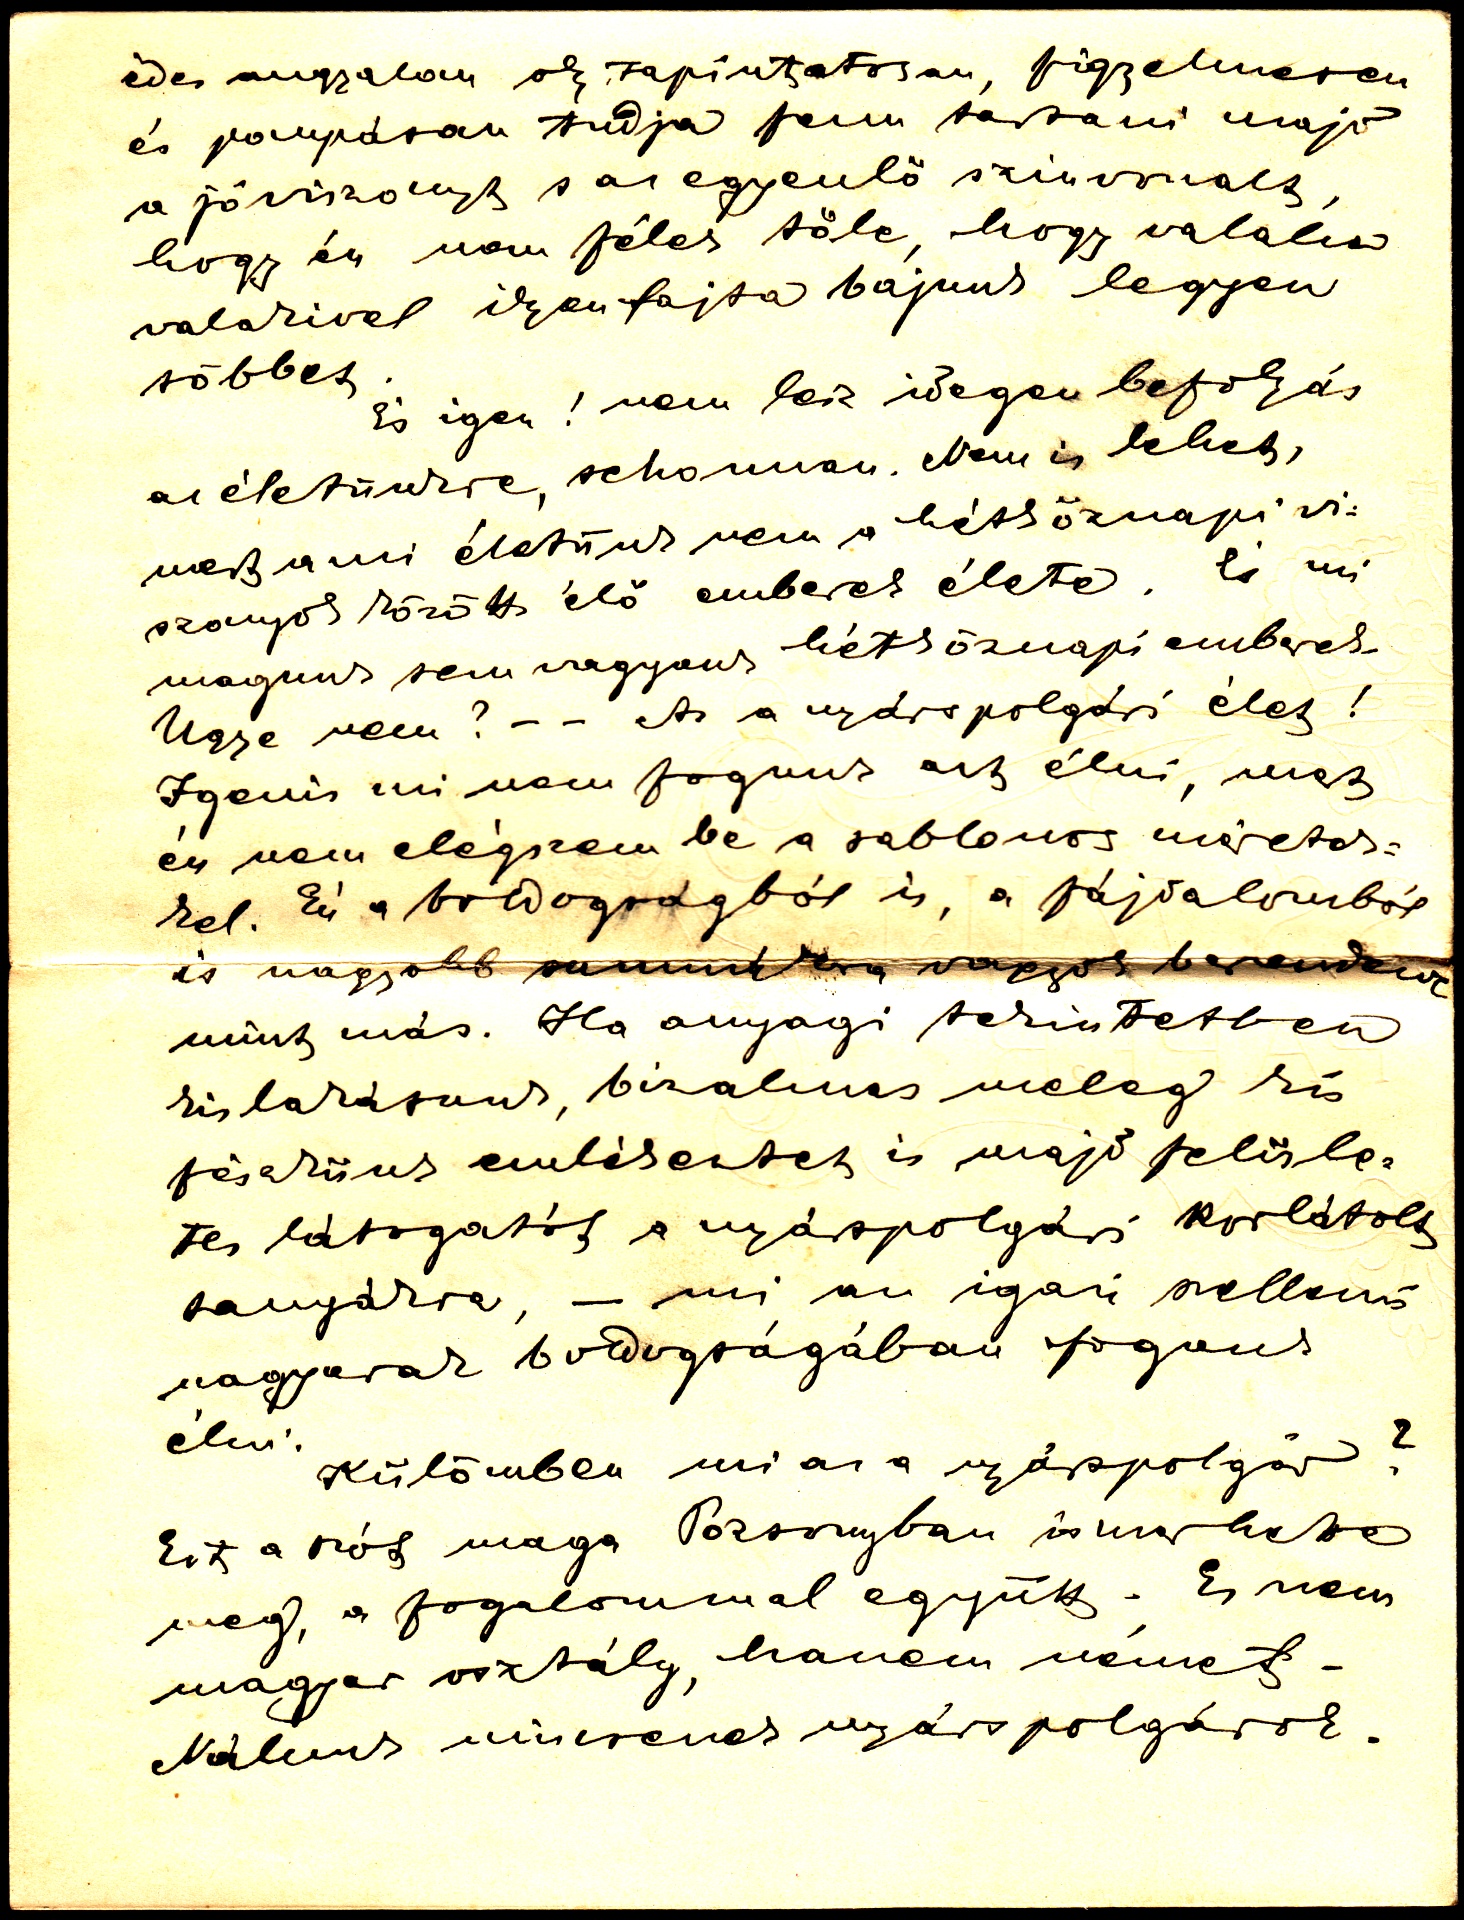 édes angyalom oly tapintatosan, figyelmesen
és pompásan tudja fenn tartani majd
a jóviszonyt s az egyenlő szinvonalt,
hogy én nem félek tőle, hogy valaha
valakivel ilyenfajta bajunk legyen
többet.
És igen! nem lesz idegen befolyás
az életünkre, sehonnan. Nem is lehet,
mert a mi életünk nem a hétköznapi vi=
szonyok között élő emberek élete. És mi
magunk sem vagyunk hétköznapi emberek.
Ugye nem? -- Az a nyárspolgári élet!
Igenis mi nem fogunk azt élni, mert
én nem elégszem be a sablonos méretek=
kel. Én a boldogságból is, a fájdalomból
is nagyobb summákra vagyok berendezve
mint más. Ha anyagi tekintetben
kis lakásunk, bizalmas meleg kis
fészkünk emlékeztet is majd felüle=
tes látogatót a nyárspolgári korlátolt
tanyákra, — mi an igazi szellemi
nagyurak boldogságában fogunk
élni.
Külömben mi az a nyárspolgár?
Ezt a szót maga Pozsonyban ismerhette
meg, a fogalommal együtt. Ez nem
magyar osztály, hanem német -
Nálunk nincsenek nyárspolgárok.